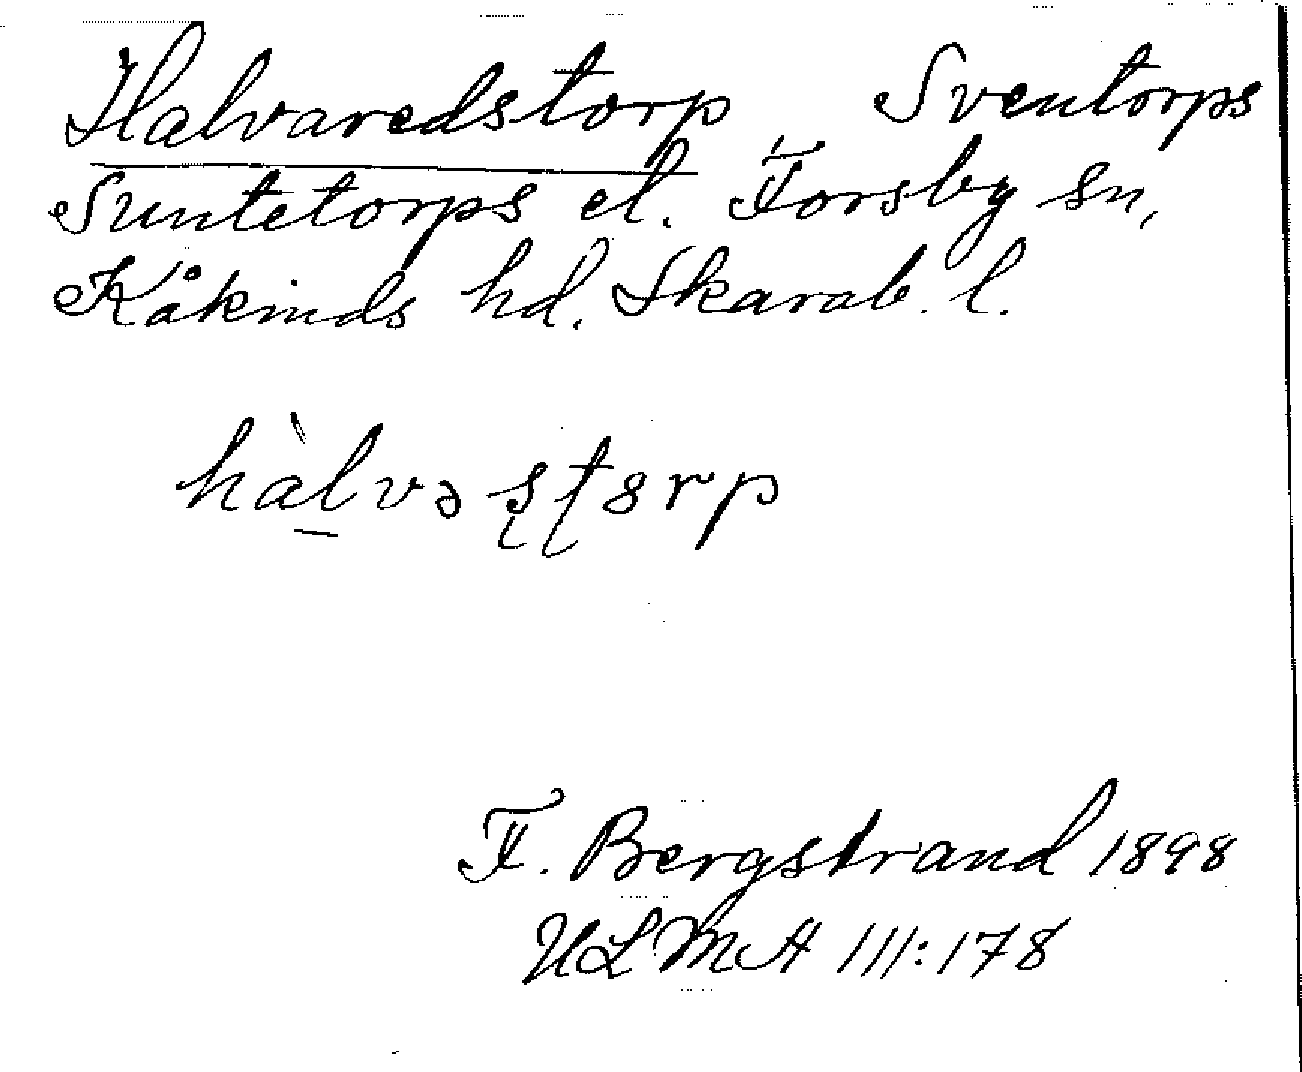 Halvaredstorp Sventorps
Suntetorps el. Forsby sn,
Kåkinds hd. Skarab. l.
hàlvəstorp
F. Bergstrand 1898
ULMA 111:178